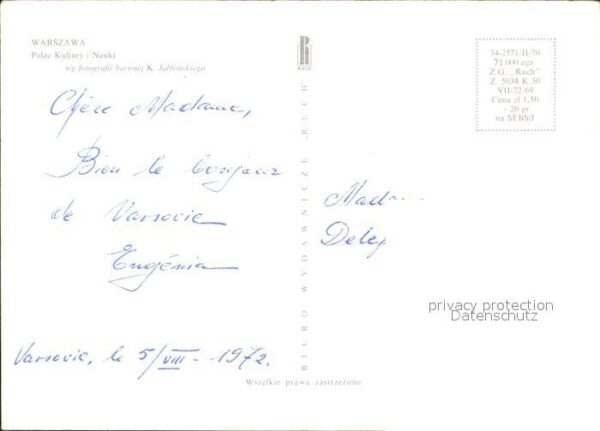 WARSZAWA
Pałac Kultury i Nauki
wg fotografii barwnej K. Jabłońskiego
Chère Madame,
Bien le bonjour
de Varsovie
Eugénia
Varsovie, le 5/VIII - 1972.
BIURO WYDAWNICZE „RUCH"
34-2571/II/70
71 000 egz.
Z.G. „Ruch"
Z. 5034 K 30
VII-72-69
Cena zł 1,50
+ 20 gr
na SFBSiI
Madam
Delep
privacy protection
Datenschutz
Wszelkie prawa zastrzeżone